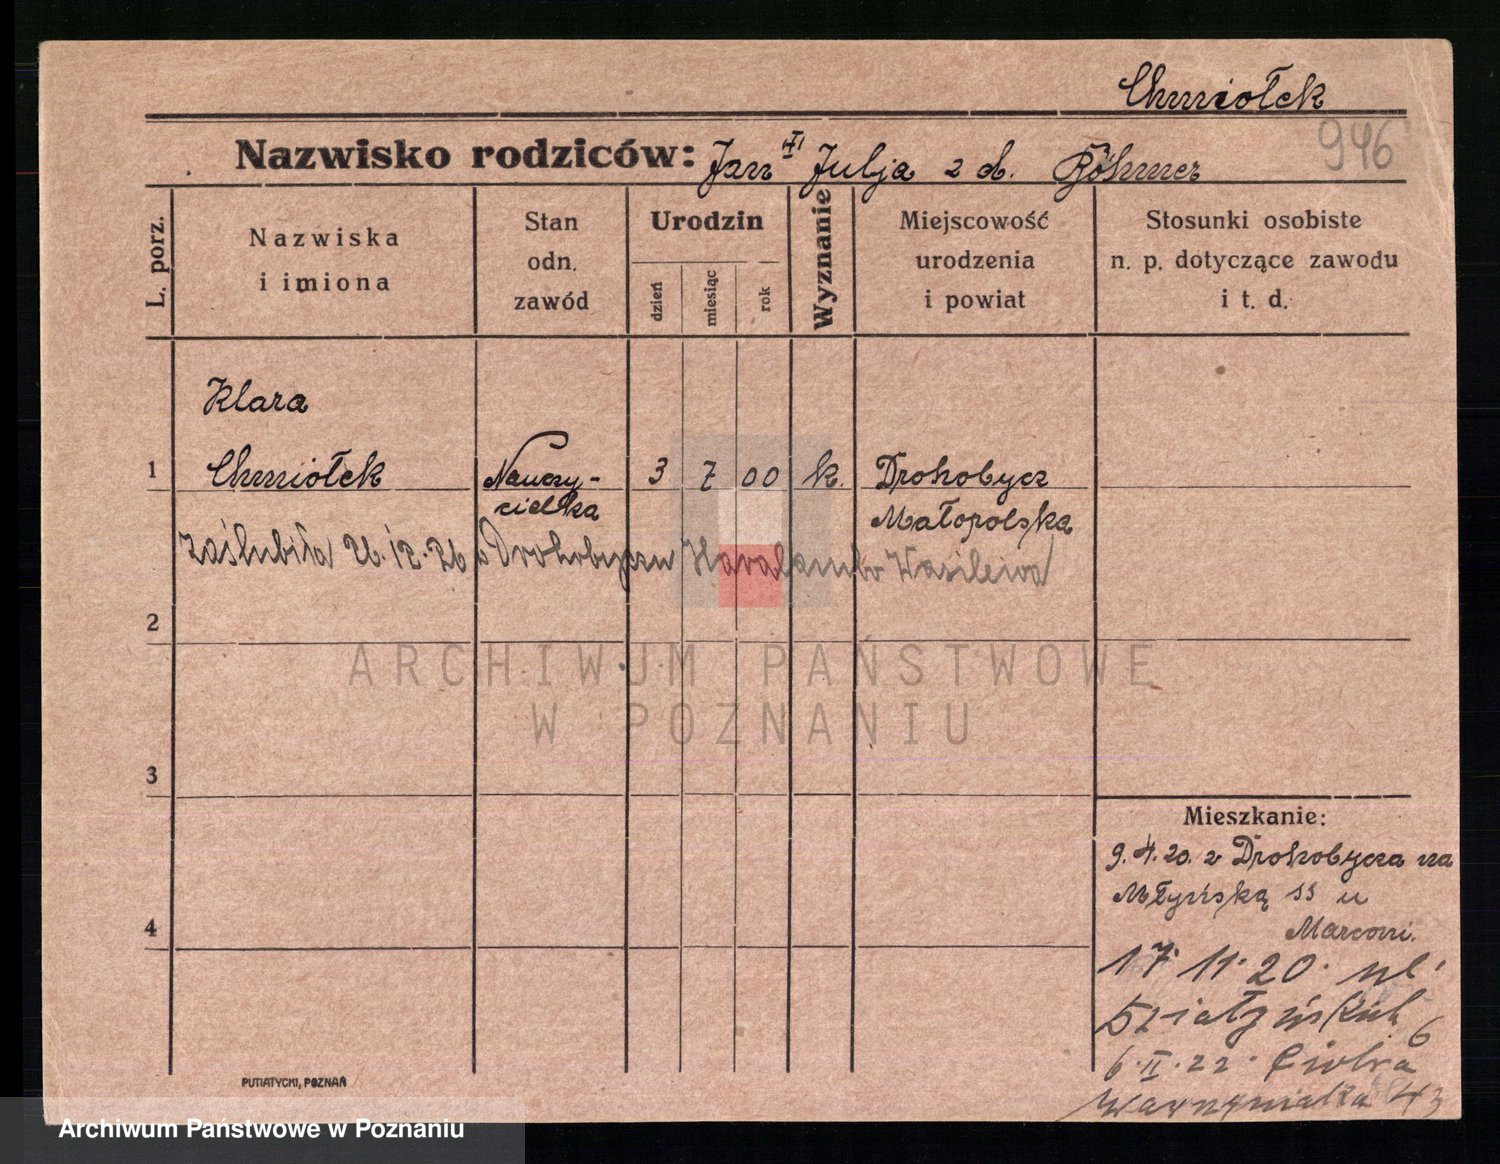 Chmiołek
946
Nazwisko rodziców: Jan Julja z d. Böhmer
L. porz.
Nazwiska
i imiona
Stan
odn.
zawód
Urodzin
dzień
miesiąc
rok
Wyznanie
Miejscowość
urodzenia
i powiat
Stosunki osobiste
n. p. dotyczące zawodu
i t. d.
Klara
1 Chmiołek Nauczy- 3 7 00 k. Drohobycz
cielka Małopolska
zaślubiła 26.12.26 w Drohobyczu Haralambo Wasilewa
2
3
4
Mieszkanie:
9.4.20. z Drohobycza na
Młyńską 11 u
Marconi.
17.11.20. ul.
Działyńskich 6
6.II.22. Piotra
Wawrzyniaka 43
PUTIATYCKI, POZNAŃ
ARCHIWUM PAŃSTWOWE
W POZNANIU
Archiwum Państwowe w Poznaniu